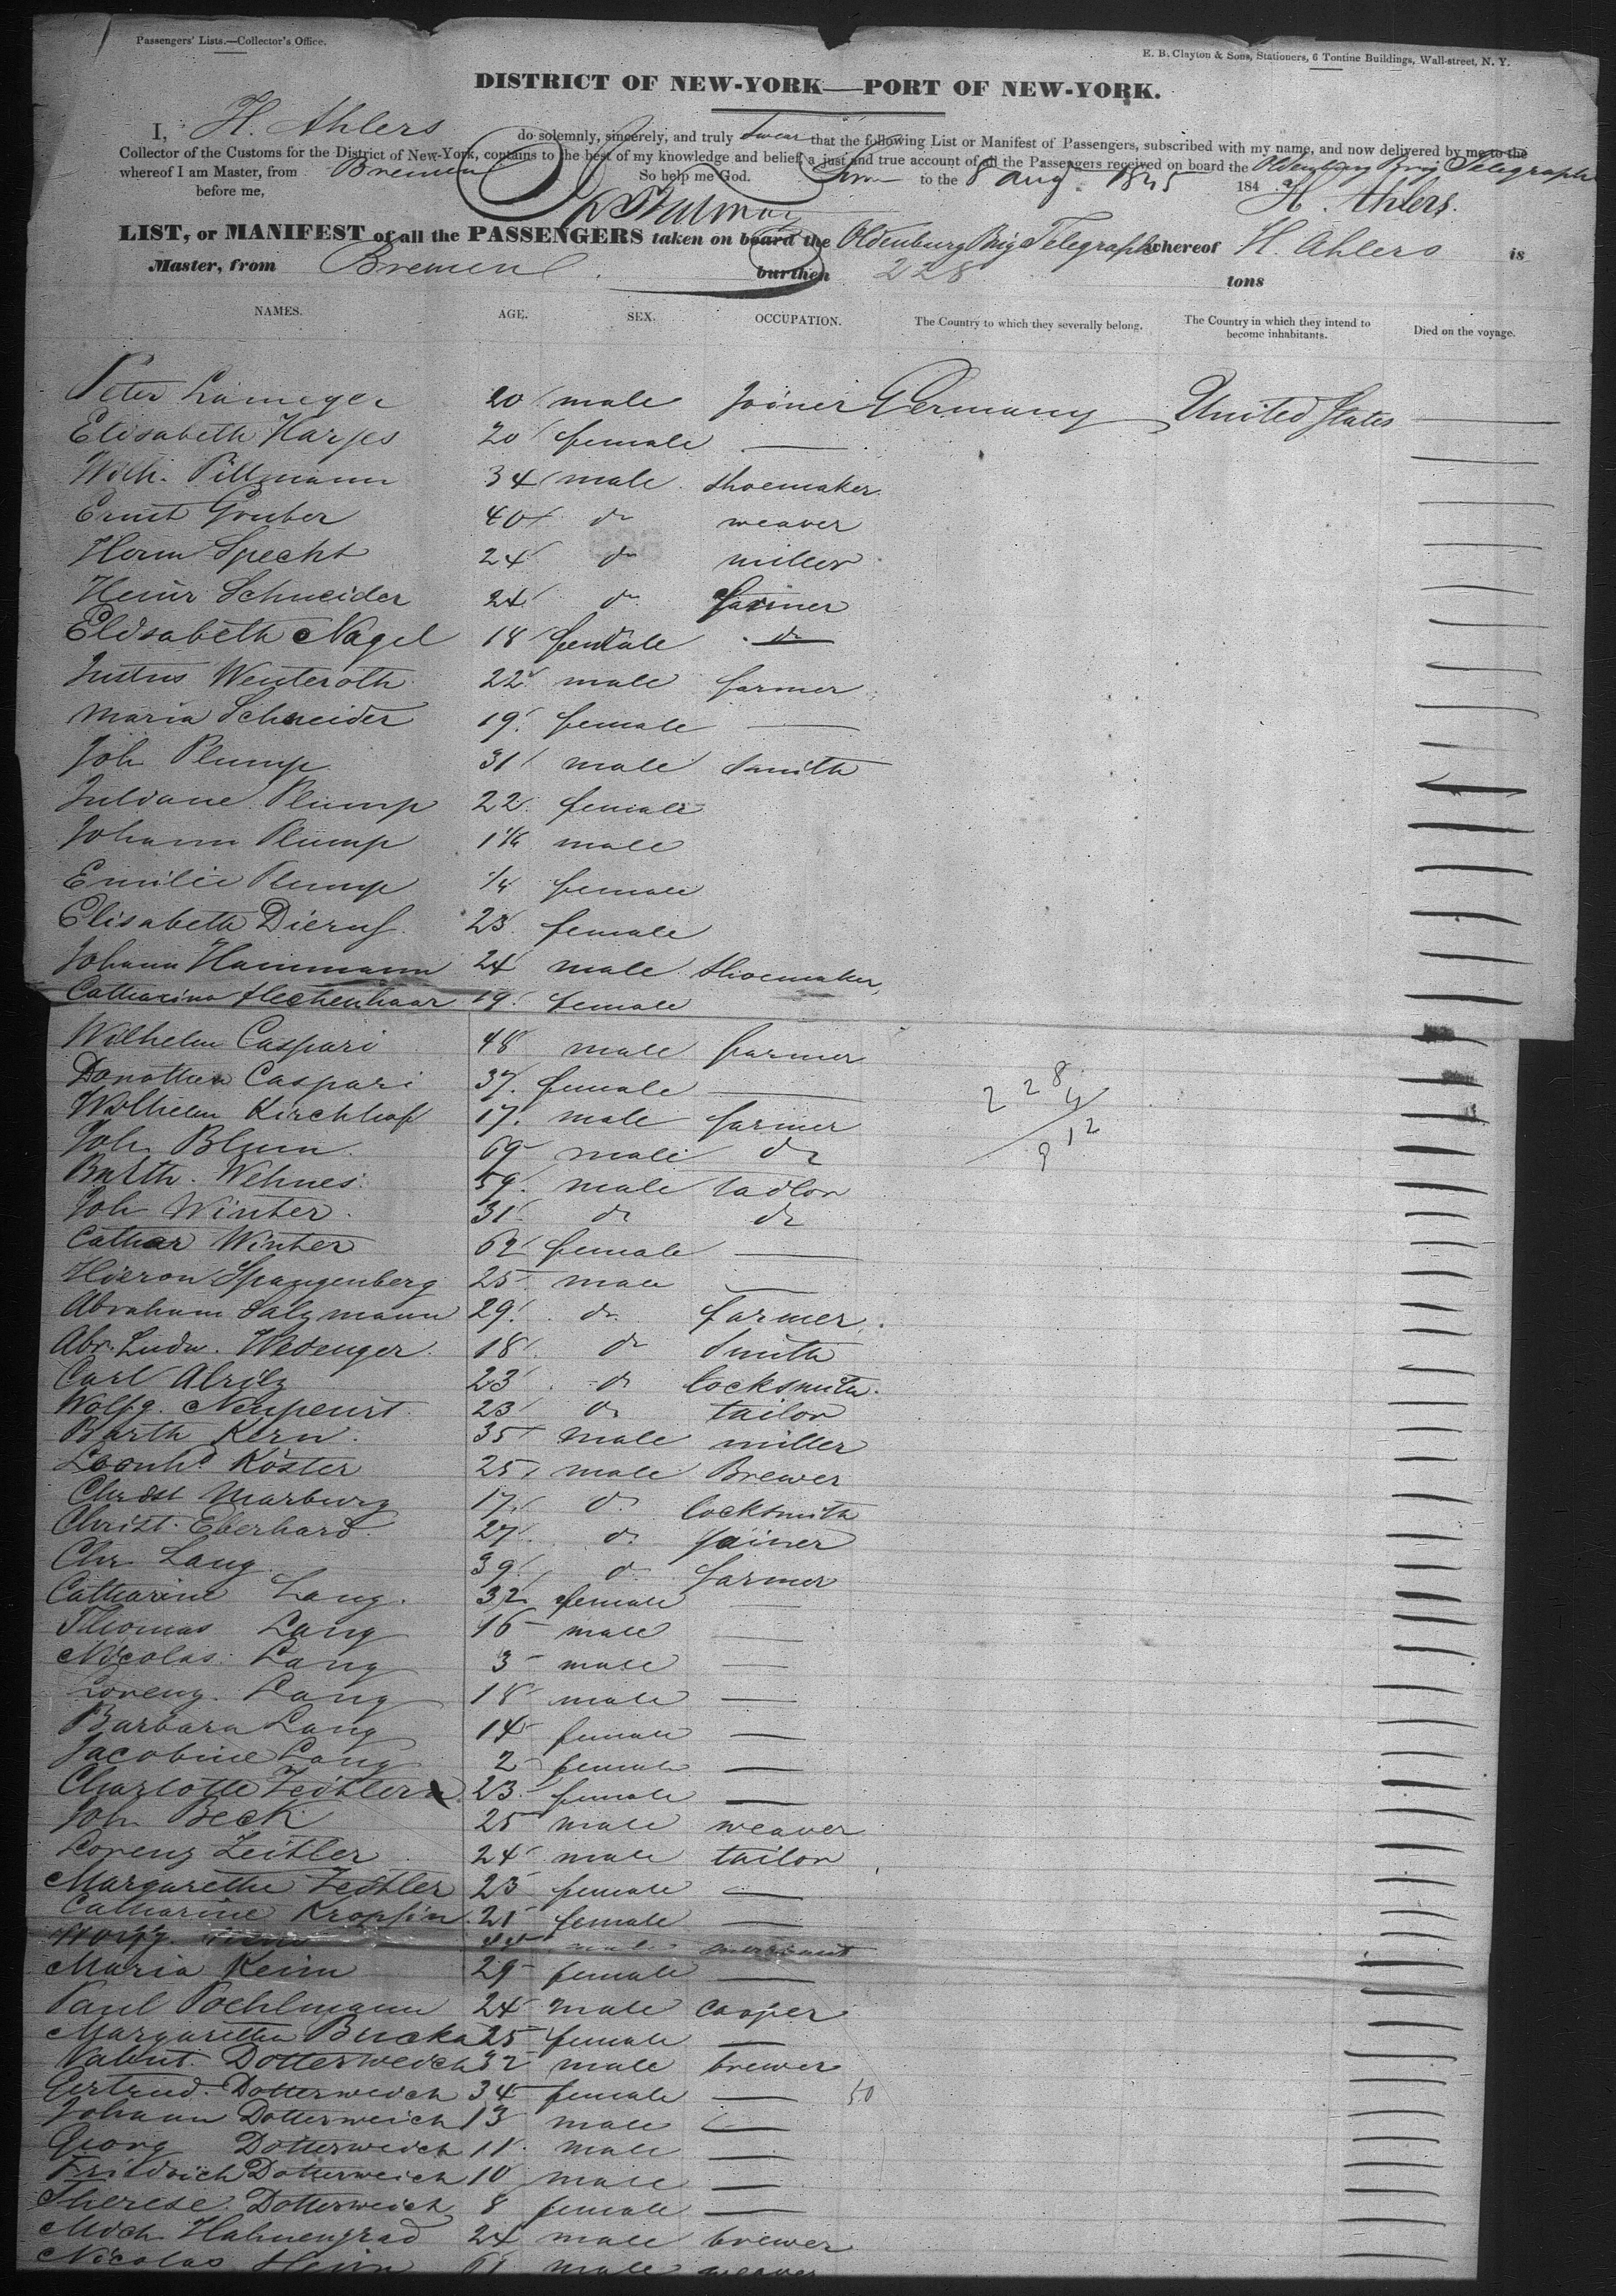 Passengers' Lists.—Collector's Office.
E. B. Clayton & Sons, Stationers, 6 Tontine Buildings, Wall-street, N. Y.
DISTRICT OF NEW-YORK—PORT OF NEW-YORK.
I, H. Ahlers do solemnly, sincerely, and truly swear that the following List or Manifest of Passengers, subscribed with my name, and now delivered by me to the
Collector of the Customs for the District of New-York, contains to the best of my knowledge and belief, a just and true account of all the Passengers received on board the Oldenburg Brig Telegraph
whereof I am Master, from Bremen So help me God. Sworn to the 8 Aug. 1845 184
before me, H. Ahlers.
LIST, or MANIFEST of all the PASSENGERS taken on board the Oldenburg Brig Telegraph whereof H. Ahlers is
Master, from Bremen burthen 228 tons
NAMES. AGE. SEX. OCCUPATION. The Country to which they severally belong. The Country in which they intend to become inhabitants. Died on the voyage.
Peter Lameyer 20 male Joiner Germany United States
Elisabeth Harjes 20 female —
Wilh. Pillmann 34 male shoemaker
Ernst Gruber 40 do weaver
Herm Specht 24 do miller
Heinr Schneider 24 do farmer
Elisabeth Nagel 18 female do
Justus Wenteroth 22 male farmer
Maria Schneider 19 female —
Joh Plump 31 male Smith
Juliane Plump 22 female
Johann Plump 1 1/4 male
Emilie Plump 1/4 female
Elisabeth 23 female
Johann Hammann 24 male shoemaker
Catharina 19 female
Wilhelm Caspari 48 male farmer
Dorothea Caspari 37 female —
Wilhelm Kirchhof 17 male farmer
228
4
912
Joh. Blum 69 male do
Barth. Wehnes 59 male tailor
Joh Winter 31 do do
Cathar Winter 62 female —
Hieron Spangenberg 25 male —
Abraham Salzmann 29 do farmer
Abr. Ludw. 18 do Smith
Carl 23 do locksmith
Wolfg. 23 do tailor
Barth Kern 35 male miller
Leonhd Köster 25 male Brewer
Christ Marburg 17 do locksmith
Christ. Eberhard 27 do joiner
Chr. Lang 39 do farmer
Catharine Lang 32 female —
Thomas Lang 16 male —
Nicolas Lang 3 male —
Lorenz Lang 18 male —
Barbara Lang 14 female —
Jacobine Lang 2 female —
Charlotte Zeitlern 23 female —
Joh Beck 25 male weaver
Lorenz Zeitler 24 male tailor
Margarethe Zeitler 23 female —
Catharine Kropfin 21 female —
Wolfg. 44 male
Maria Keim 29 female —
Paul Poehlmann 24 male cooper
Margaretha Bucka 25 female —
Valent. Dotterweich 32 male brewer
Gertrud. Dotterweich 34 female — 50
Johann Dotterweich 13 male —
Georg Dotterweich 11 male —
Friedrich Dotterweich 10 male —
Therese Dotterweich 8 female —
Mich. Hahnengrad 24 male brewer
Nicolas 61 male weaver